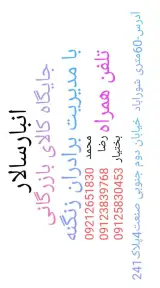 انبارسالار
جایگاه کالای بازرگانی
با مدیریت برادران زنگنه
تلفن همراه
محمد 09212651830
رضا 09123839768
بختیار 09125830453
ادرس-60متری شوراباد خیابان دوم جنوبی صنعت4پلاک241